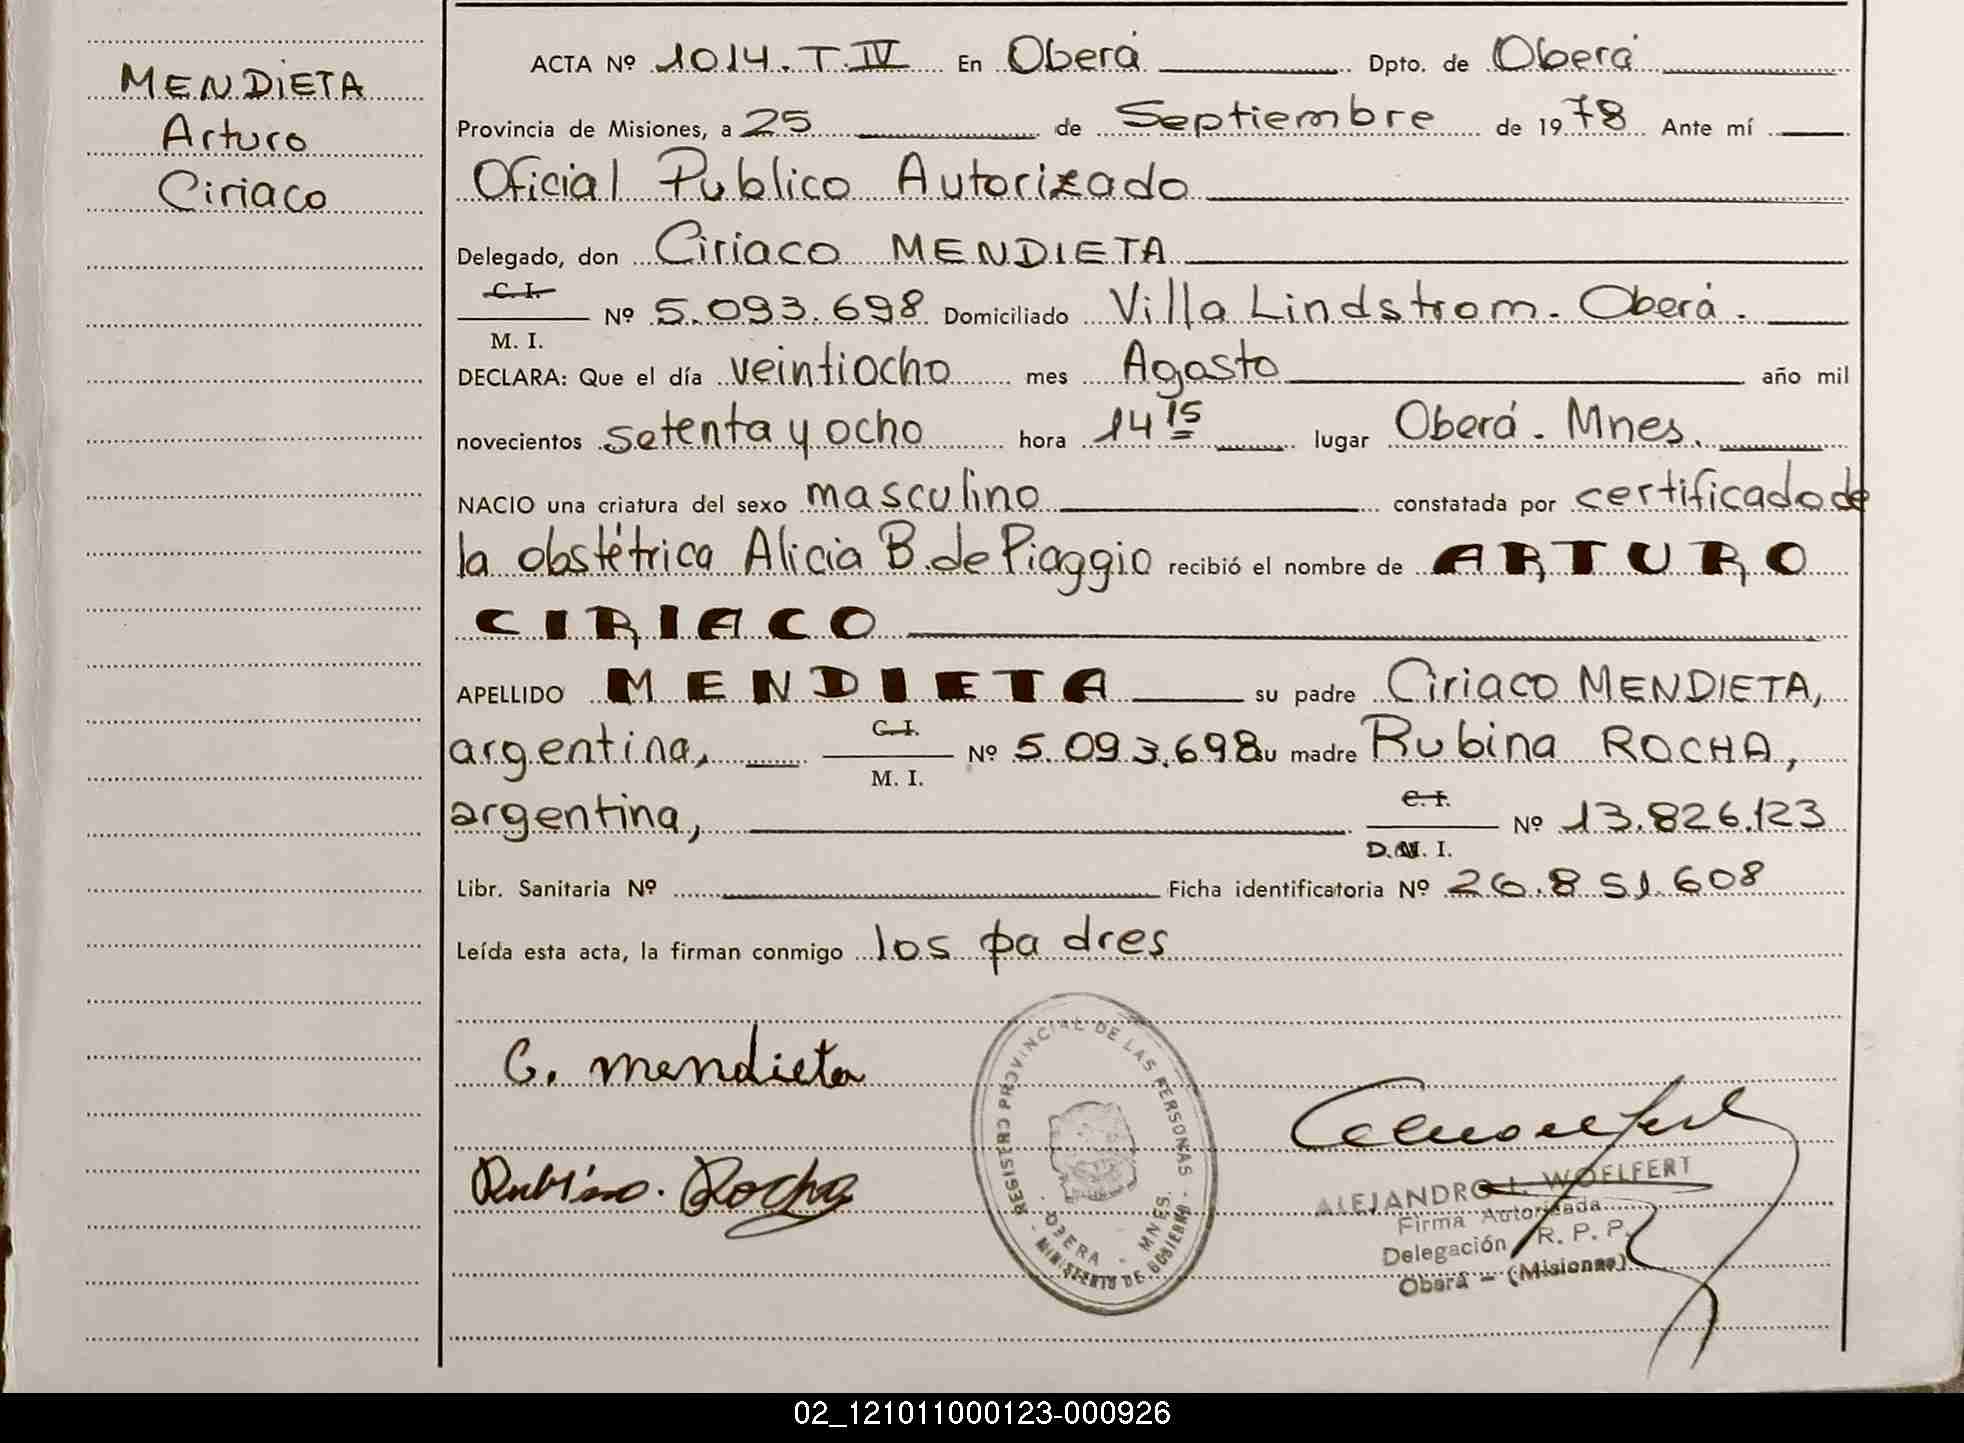 MENDIETA
Arturo
Ciriaco
ACTA Nº 1014. T. IV En Oberá Dpto. de Oberá
Provincia de Misiones, a 25 de Septiembre de 1978 Ante mí
Oficial Publico Autorizado
Delegado, don Ciriaco MENDIETA
C. I.
M. I.
Nº 5.093.698 Domiciliado Villa Lindstrom. Oberá.
DECLARA: Que el día veintiocho mes Agosto año mil
novecientos setenta y ocho hora 14 15 lugar Oberá. Mnes.
NACIO una criatura del sexo masculino constatada por certificado de
la obstétrica Alicia B. de Piaggio recibió el nombre de ARTURO
CIRIACO
APELLIDO MENDIETA su padre Ciriaco MENDIETA,
argentina, C. I. M. I. Nº 5.093.698 su madre Rubina ROCHA,
argentina, C. I. D. N. I. Nº 13.826.123
Libr. Sanitaria Nº Ficha identificatoria Nº 26.851.608
Leída esta acta, la firman conmigo los padres
C. mendieta
Rubina. Rocha
REGISTRO PROVINCIAL DE LAS PERSONAS
OBERA - MNES.
MINISTERIO DE GOBIERNO
ALEJANDRO L. WOELFERT
Firma Autorizada
Delegación R. P. P.
Oberá - (Misiones)
02_121011000123-000926